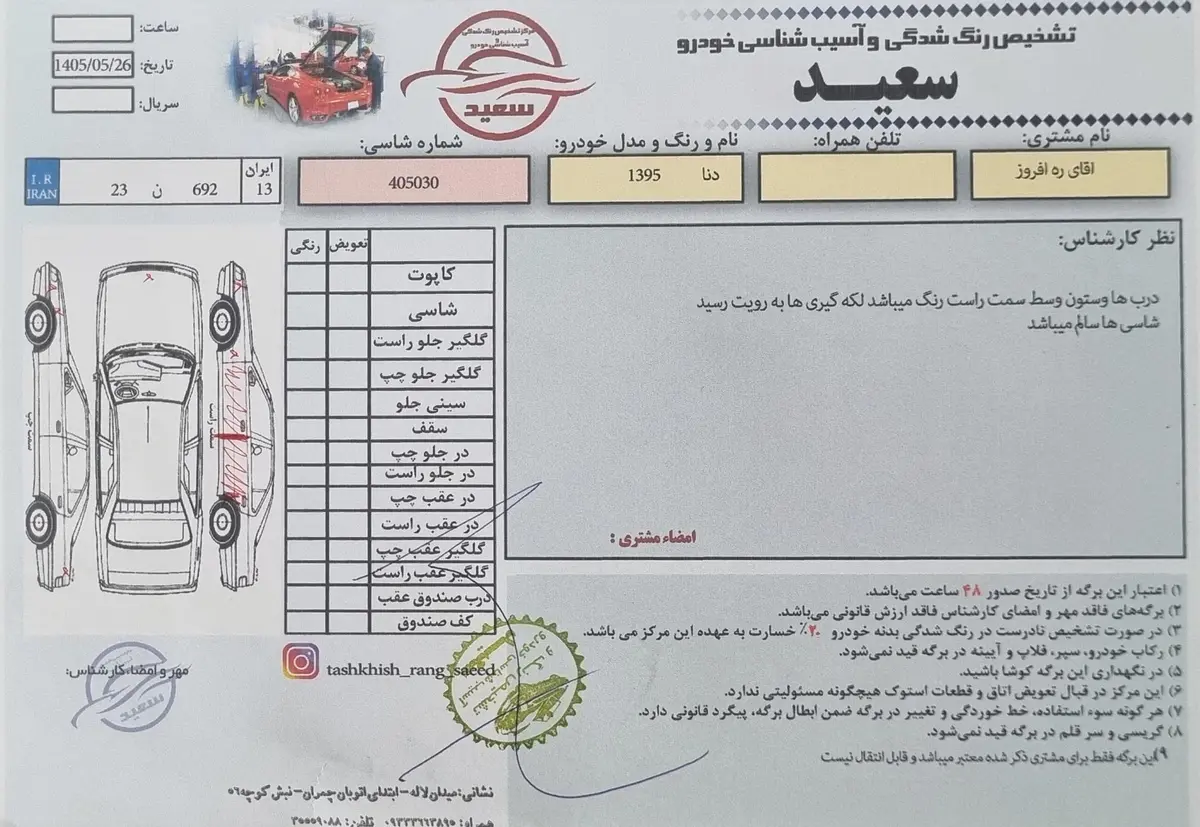 تشخیص رنگ شدگی و آسیب شناسی خودرو
سعید
مرکز تشخیص رنگ شدگی
و
آسیب شناسی خودرو
سعید
ساعت:
تاریخ: 1405/05/26
سریال:
نام مشتری:
اقای ره افروز
تلفن همراه:
نام و رنگ و مدل خودرو:
دنا 1395
شماره شاسی:
405030
ایران
13
692 ن 23
I.R
IRAN
نظر کارشناس:
درب ها وستون وسط سمت راست رنگ میباشد لکه گیری ها به رویت رسید
شاسی ها سالم میباشد
امضاء مشتری :
تعویض رنگی
کاپوت
شاسی
گلگیر جلو راست
گلگیر جلو چپ
سینی جلو
سقف
در جلو چپ
در جلو راست
در عقب چپ
در عقب راست
گلگیر عقب چپ
گلگیر عقب راست
درب صندوق عقب
کف صندوق
سمت راست
سمت چپ
۱) اعتبار این برگه از تاریخ صدور ۴۸ ساعت می‌باشد.
۲) برگه‌های فاقد مهر و امضای کارشناس فاقد ارزش قانونی می‌باشد.
۳) در صورت تشخیص نادرست در رنگ شدگی بدنه خودرو ۲۰٪ خسارت به عهده این مرکز می باشد.
۴) رکاب خودرو، سپر، فلاپ و آیینه در برگه قید نمی‌شود.
۵) در نگهداری این برگه کوشا باشید.
۶) این مرکز در قبال تعویض اتاق و قطعات استوک هیچگونه مسئولیتی ندارد.
۷) هر گونه سوء استفاده، خط خوردگی و تغییر در برگه ضمن ابطال برگه، پیگرد قانونی دارد.
۸) گریسی و سر قلم در برگه قید نمی‌شود.
۹) این برگه فقط برای مشتری ذکر شده معتبر میباشد و قابل انتقال نیست
مهر و امضاء کارشناس:
سعید
tashkhish_rang_saeed
نشانی: میدان لاله – ابتدای اتوبان چمران – نبش کوچه ۵۶
همراه: ۰۹۳۳۳۶۶۳۸۹۵ تلفن: ۳۵۵۵۹۰۸۸